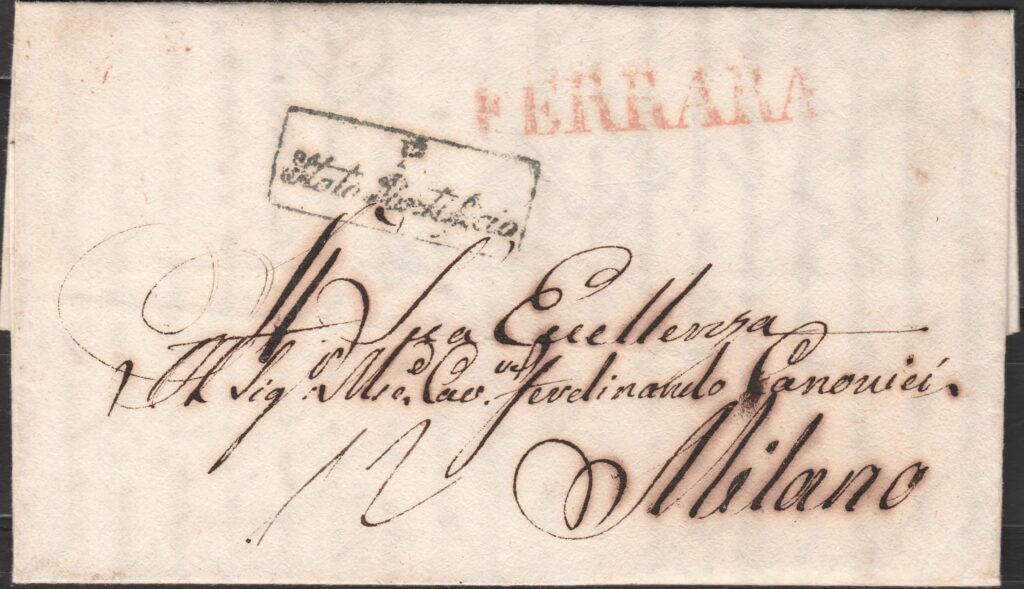 FERRARA
P
Stato Pontificio
A Sua Eccellenza
Il Sig.r Mse. Cav.re Ferdinando Canonici.
Milano
12